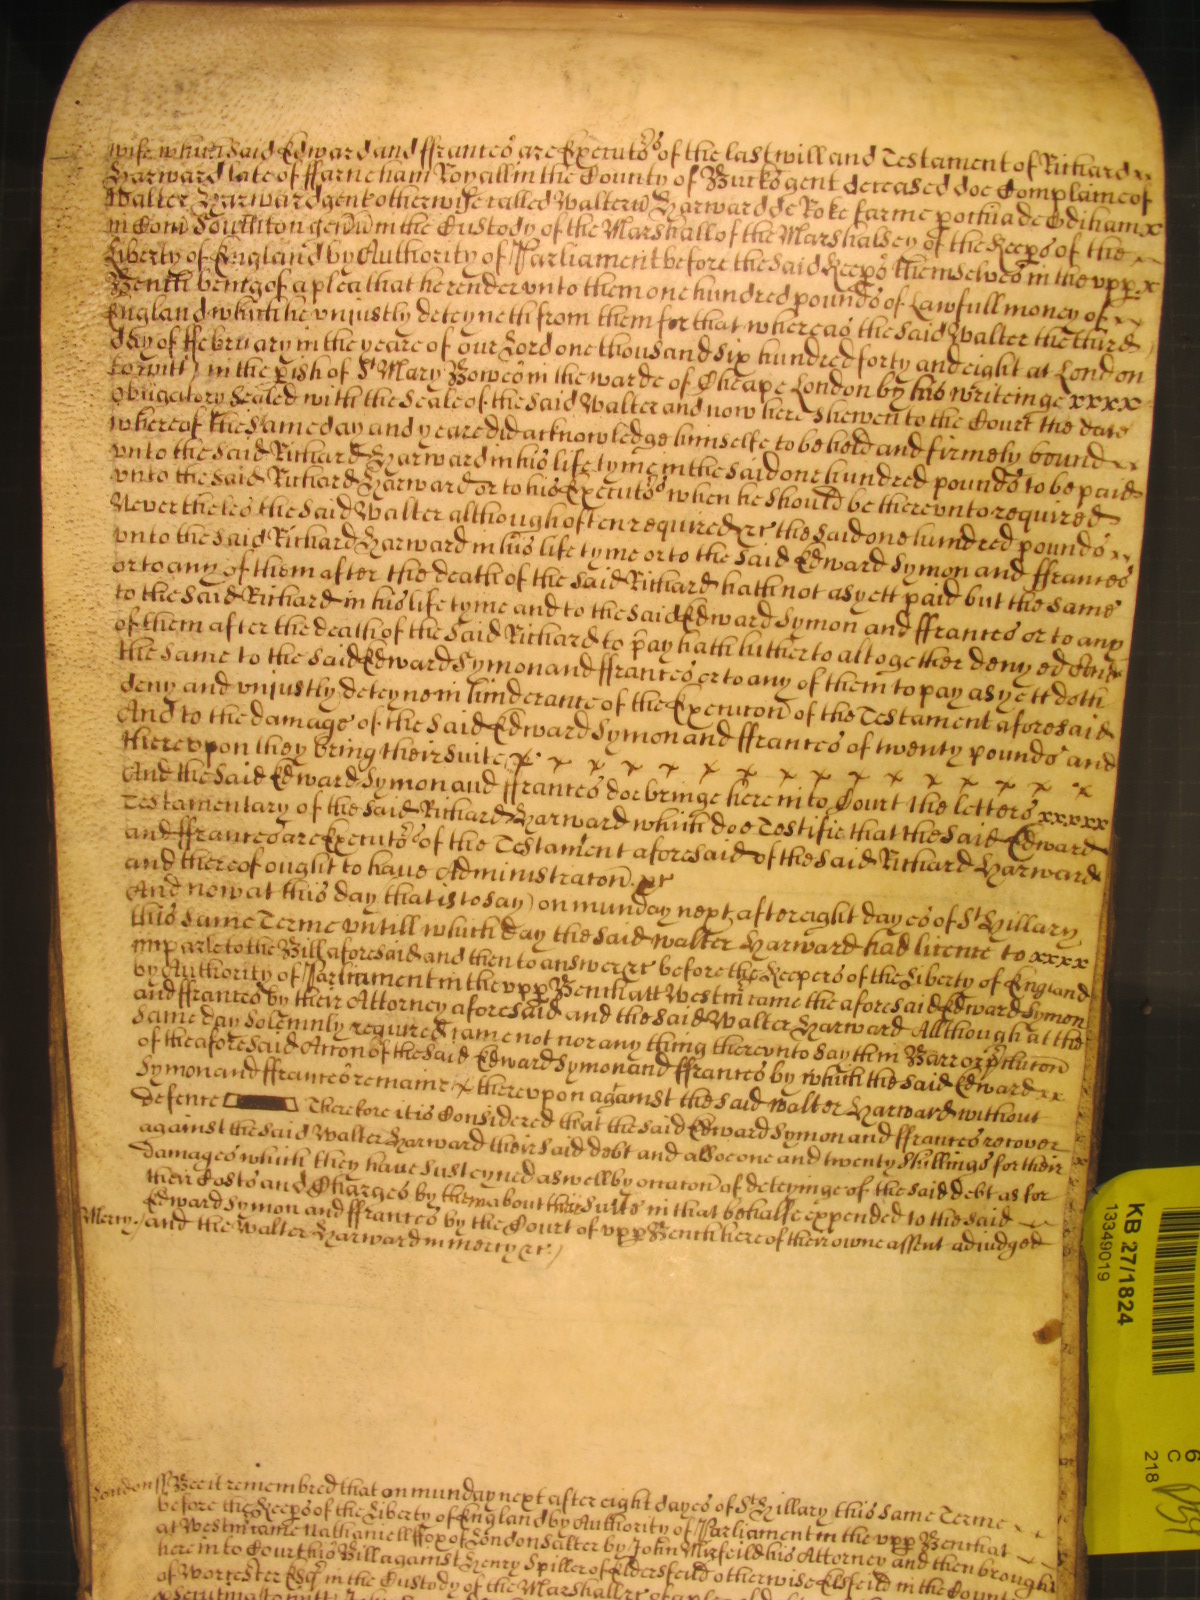 wife which said Edward and ffrances are Executors of the last will and Testament of Richard
Harward late of ffarneham Royall in the County of Bucks gent deceased doe Complaine of
Walter Harward gent otherwise called Walterū Harward de Roke farme pochia de Odiham x
in Com Southton genū in the Custody of the Marshall of the Marshalsey of the Keeps of the
Liberty of England by Authority of Parliament before the said Keeps themselves in the upp x
Bench being of a plea that he render unto them one hundred pounds of Lawfull money of
England which he unjustly deteyneth from them for that whereas the said Walter the third
day of ffebruary in the yeare of our Lord one thousand six hundred forty and eight at London
to witt) in the pish of St Mary Bowes in the warde of Cheape London by his writeinge xxxx
obligatory Sealed with the Seale of the said Walter and now here shewen to the Court the date
whereof the same day and yeare did acknowledge himselfe to be held and firmely bound
unto the said Richard Harward in his life tyme in the said one hundred pounds to be paid
unto the said Richard Harward or to his Executors when he should be thereunto required
Neverthelės the said Walter although often required &c the said one hundred pounds
unto the said Richard Harward in his life tyme or to the said Edward Symon and ffrances
or to any of them after the death of the said Richard hath not as yett paid but the same
to the said Richard in his life tyme and to the said Edward Symon and ffrances or to any
of them after the death of the said Richard to pay hath hitherto altogether denyed and
the same to the said Edward Symon and ffrances or to any of them to pay as yett doth
deny and unjustly deteyne in hinderance of the Execucon of the Testament aforesaid
And to the damage of the said Edward Symon and ffrances of twenty pounds and
thereupon they bring their suite &c x x x x x x x x x x x x x x x x
And the said Edward Symon and ffrances doe bringe here into Court the letters xxxxx
Testamentary of the said Richard Harward which doe Testifie that the said Edward
and ffrances are Executors of the Testament aforesaid of the said Richard Harward
and thereof ought to have Administracon &c
And now at this day that is to say) on munday next after eight dayes of St Hillary
this same Terme untill which day the said Walter Harward had licence to xxxx
imparle to the Bill aforesaid and then to answere &c before the Keepers of the Liberty of England
by Authority of Parliament in the upp Bench att Westm came the aforesaid Edward Symon
and ffrances by their Attorney aforesaid and the said Walter Harward Allthough at the
same day Solemnly required came not nor any thing thereunto say then Barr or pclucon
of the aforesaid Accon of the said Edward Symon and ffrances by which the said Edward xx
Symon and ffrances remaine x thereupon against the said Walter Harward without
defence Therefore it is Considered that the said Edward Symon and ffrances recover
against the said Walter Harward their said debt and alsoe one and twenty Shillings for their
Damages which they have susteyned aswell by occacon of deteyinge of the said debt as for
their Costs and Charges by them about their suite in that behalfe expended to the said
Edward Symon and ffrances by the Court of upp Bench here of their owne assent adiudged
Mercy / and the Walter Harward in mercy &c /
London ss Bee it remembred that on munday next after eight dayes of St Hillary this same Terme
before the Keeps of the Liberty of England by Authority of Parliament in the upp Bench at
at Westm came Nathaniell ffox of London Salter by John his Attorney and then brought
here into Court his Bill against Henry Spiller of Eldersfeild otherwise Elsfeild in the County
of Worcester Esq in the Custody of the Marshall &c of a plea
KB 27/1824
13349019
6
C
218